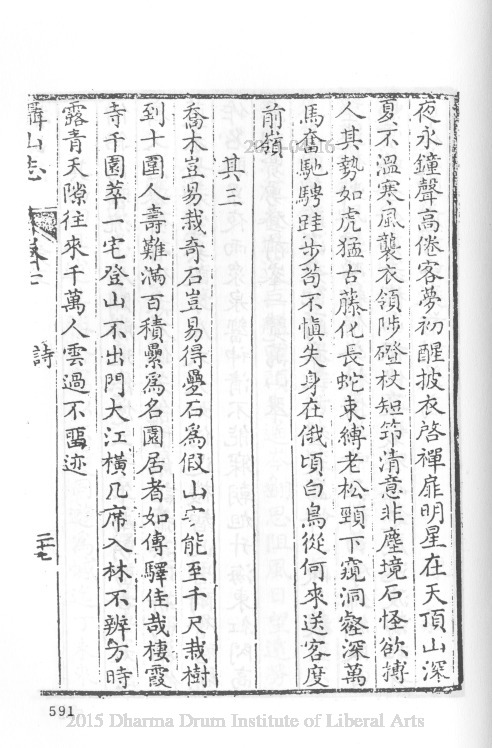 夜永鐘聲高倦客夢初醒披衣啓禪扉明星在天頂山深
夏不溫寒風襲衣領陟磴杖短笻清意非塵境石怪欲搏
人其勢如虎猛古藤化長蛇束縛老松頸下窺洞壑深萬
馬奮馳騁跬步苟不慎失身在俄頃白鳥從何來送客度
前嶺
其三
喬木豈易栽奇石豈易得疊石爲假山安能至千尺栽樹
到十圍人壽難滿百積纍爲名園居者如傳驛佳哉棲霞
寺千園萃一宅登山不出門大江橫几席入林不辨方時
露青天隙往來千萬人雲過不畱迹
攝山志
卷十
詩
二十七
591
2015 Dharma Drum Institute of Liberal Arts